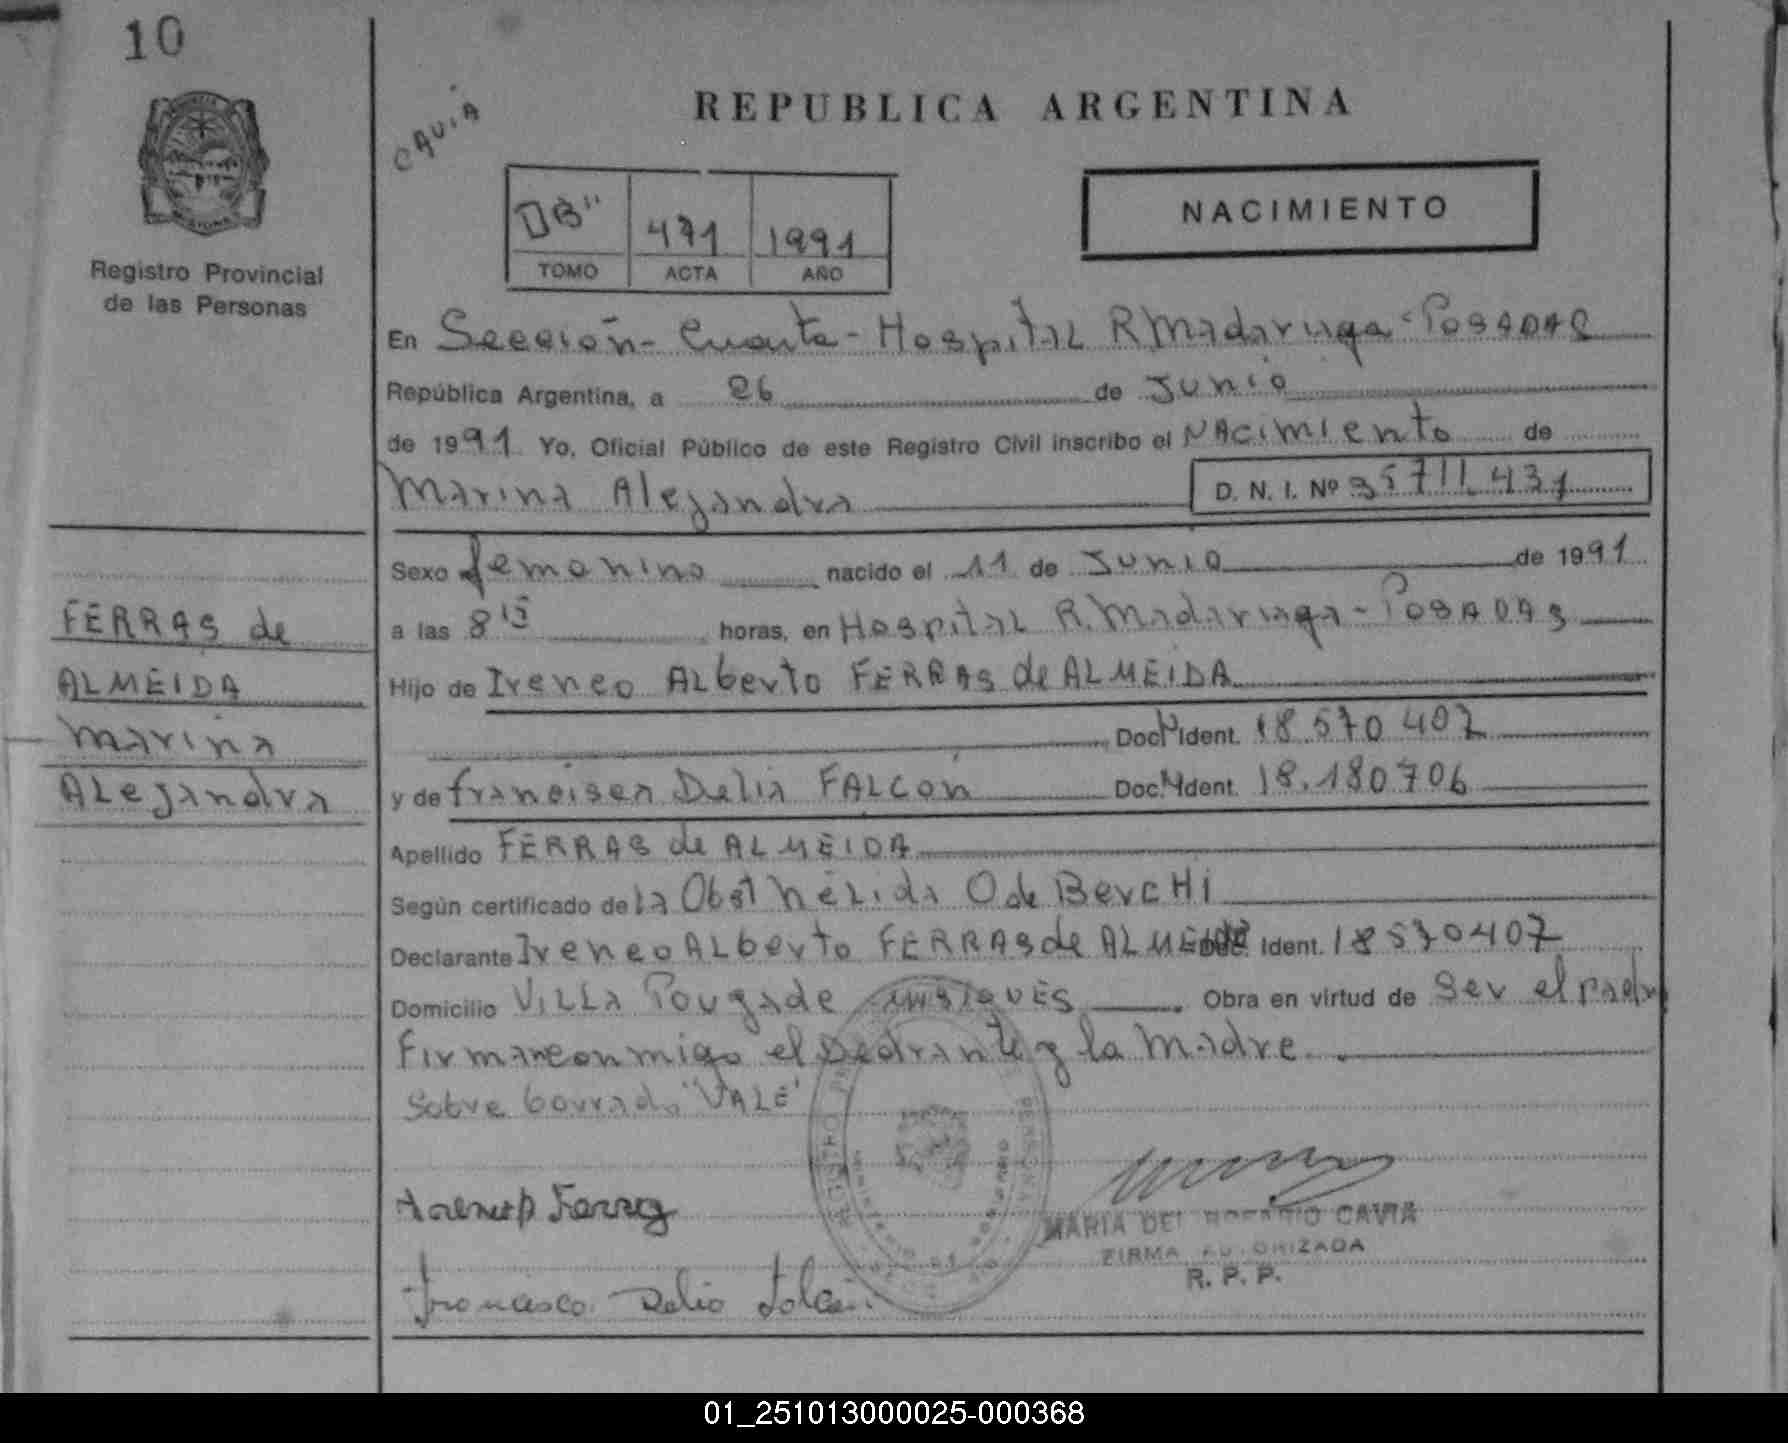 10
CAVIA
REPUBLICA ARGENTINA
Registro Provincial
de las Personas
471 1991
TOMO ACTA AÑO
NACIMIENTO
En Sección - Cuarta - Hospital R Madariaga - POSADAS
República Argentina, a 26 de Junio
de 1991 Yo, Oficial Público de este Registro Civil inscribo el NACimiento de
Marina Alejandra D. N. I. Nº 35711.431
Sexo femenino nacido el 11 de Junio de 1991
a las 8 15 horas, en Hospital R. Madariaga - POSADAS
Hijo de Ireneo Alberto FERRAS de ALMEIDA
Doc. Ident. 18 570 407
y de francisca Delia FALCON Doc. Ident. 18.180706
Apellido FERRAS de ALMEIDA
Según certificado de la Obst Nélida O de BercHi
Declarante Ireneo ALberto FERRAS de ALMEIDA Ident. 18570407
Domicilio VILLA Pougade Obra en virtud de Ser el padre
Firman conmigo el y la Madre.
Sobre borrado "VALE"
FERRAS de
ALMEIDA
Marina
ALejandra
Francisca Delia Falcon
MARIA DEL ROSARIO CAVIA
FIRMA AUTORIZADA
R. P. P.
01_251013000025-000368